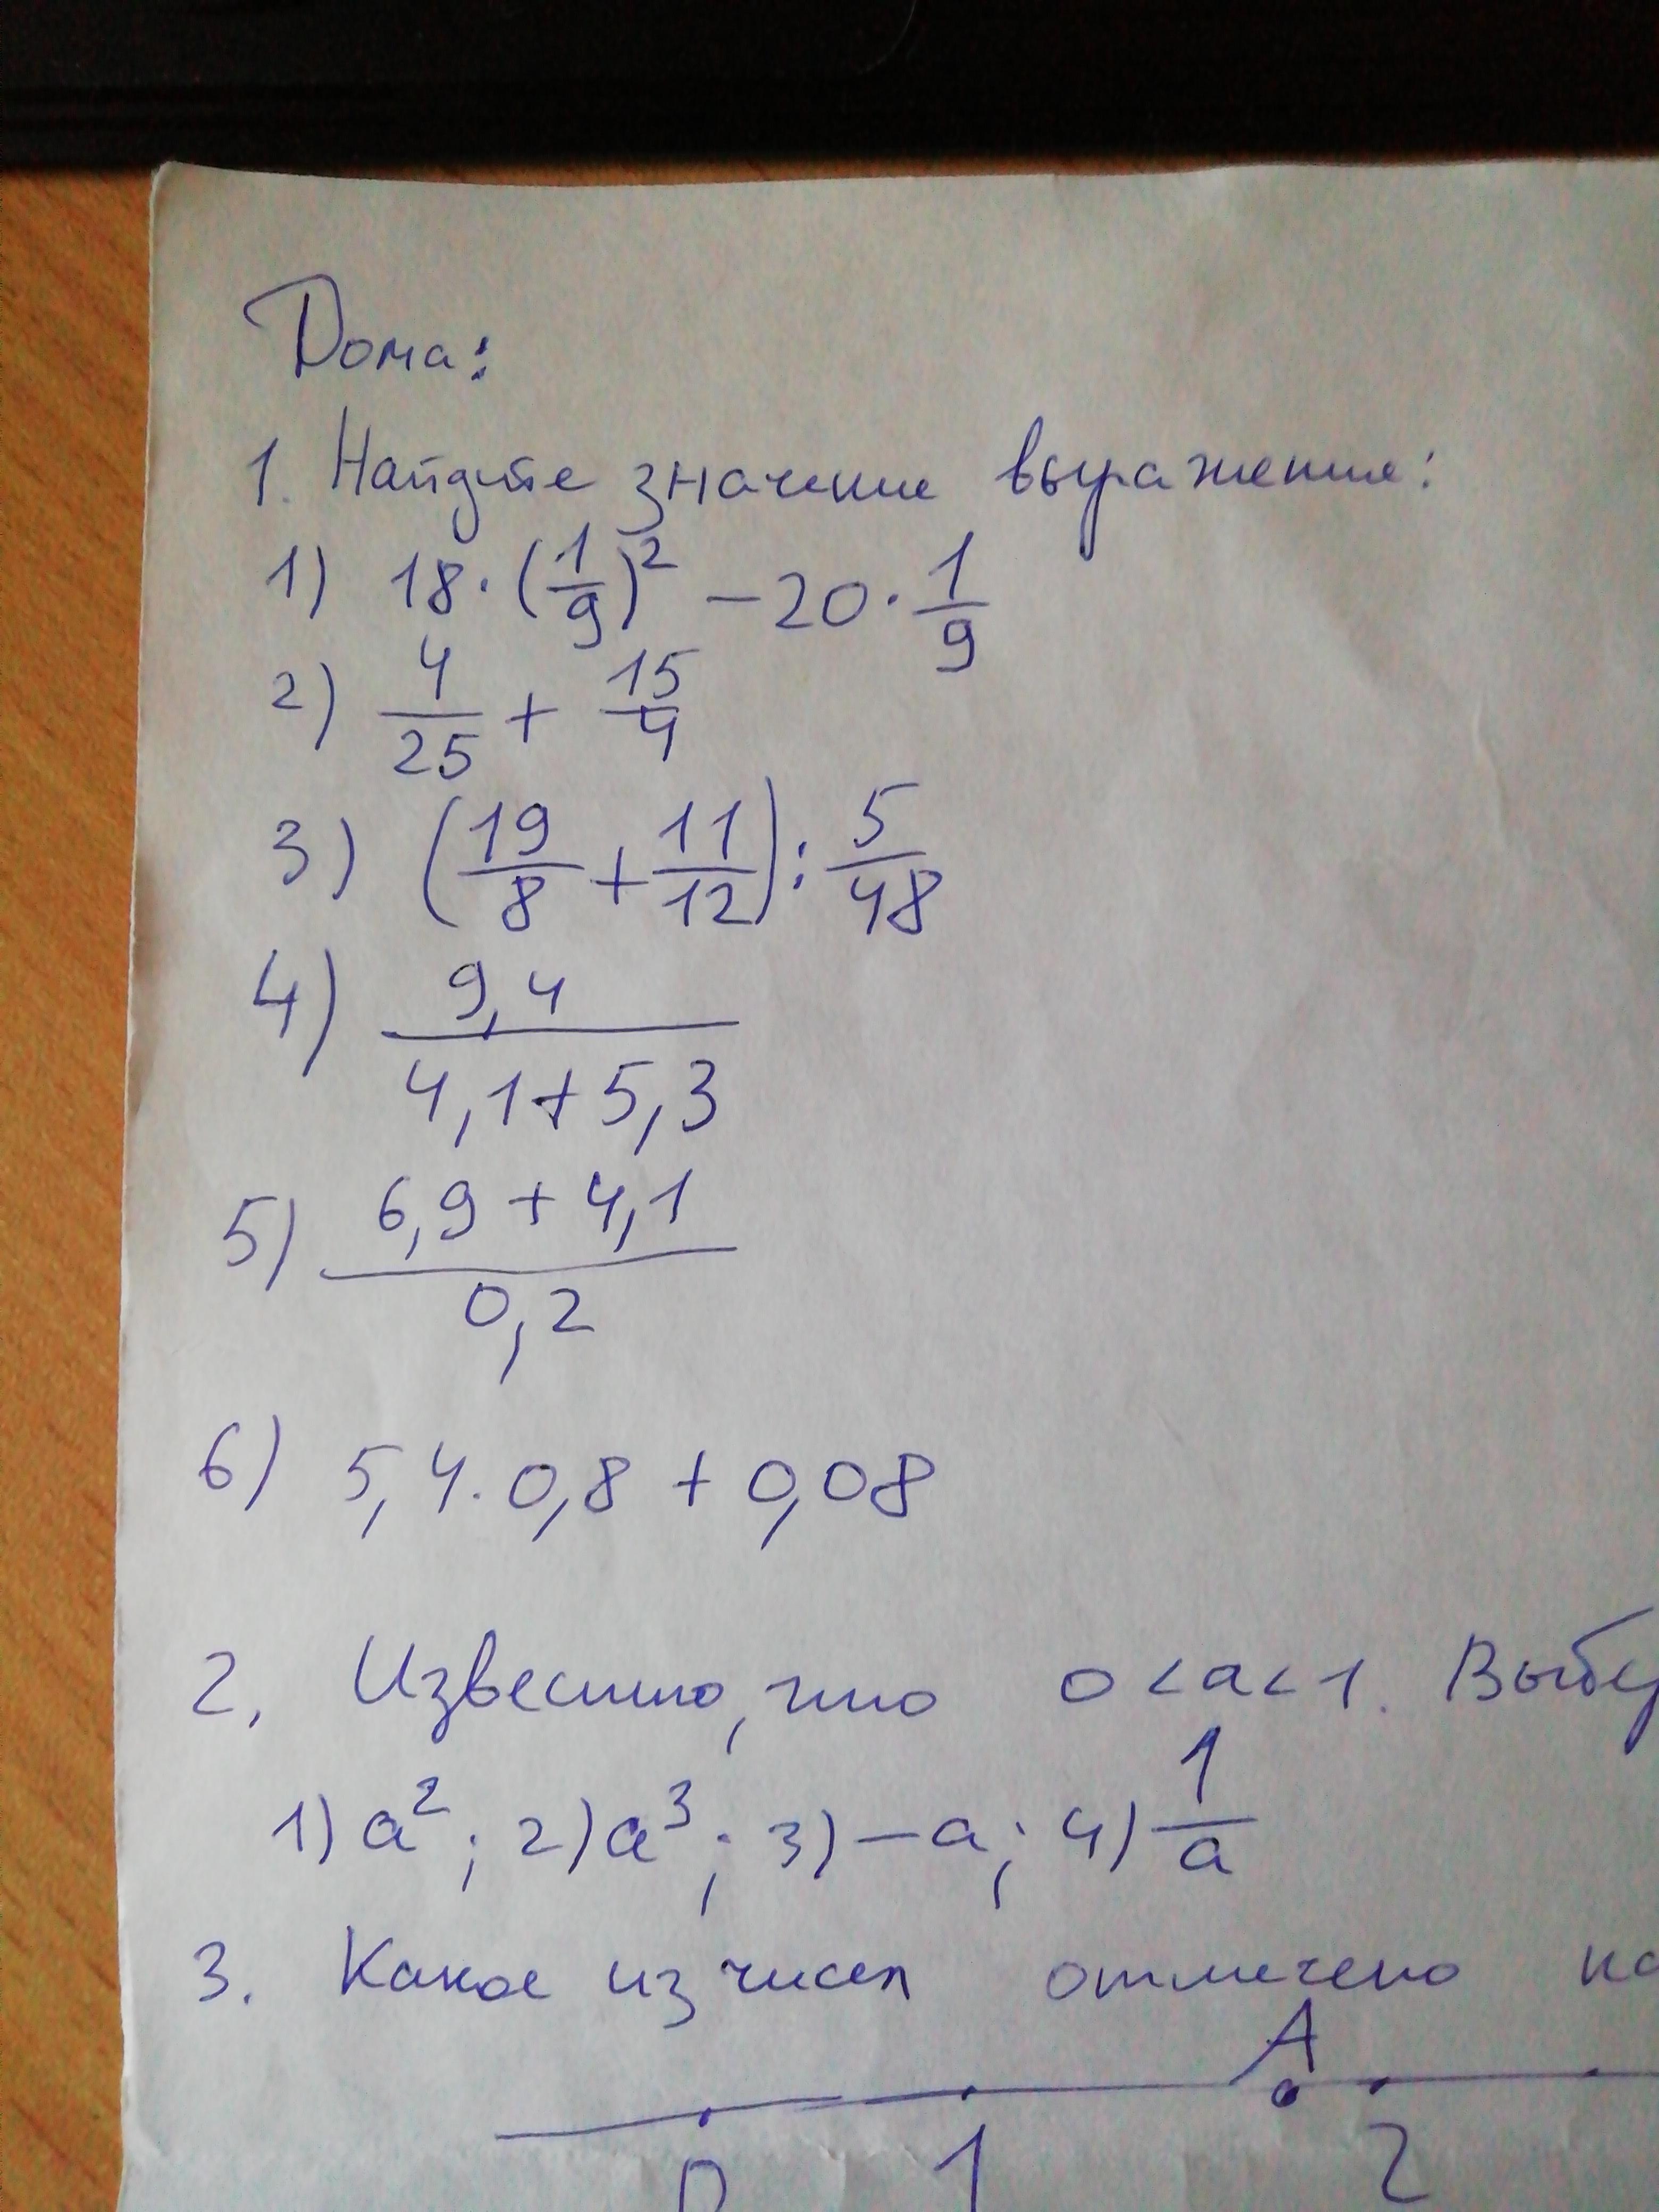 Дома:
1. Найдите значение выражения:
1) 18·(1/9)² – 20·1/9
2) 4/25 + 15/4
3) (19/8 + 11/12) : 5/48
4) 9,4/(4,1+5,3)
5) (6,9 + 4,1)/0,2
6) 5,4·0,8 + 0,08
2. Известно, что 0<a<1. Выбе
1) a²; 2) a³; 3) –a; 4) 1/a
3. Какое из чисел отмечено на
A
0 1 2